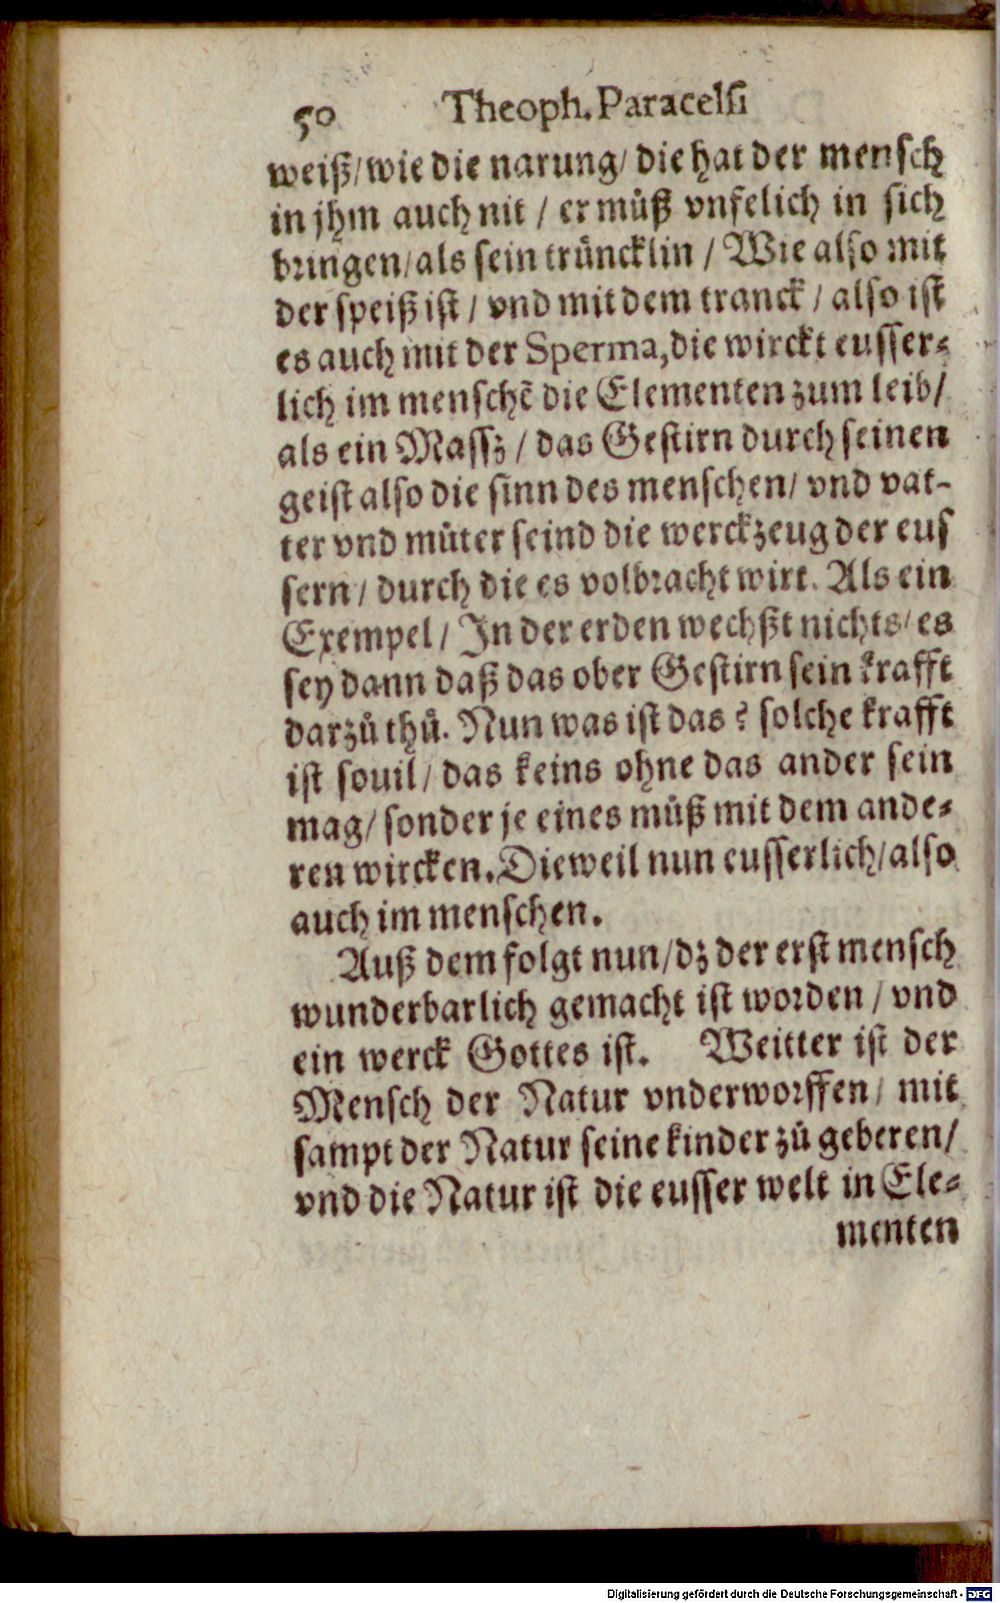 50 Theoph. Paracelsi
weiß/wie die narung/ die hat der mensch
in jhm auch nit / er můß vnfelich in sich
bringen/als sein trüncklin / Wie also mit
der speiß ist / vnd mit dem tranck / also ist
es auch mit der Sperma, die wirckt eusser⸗
lich im menschẽ die Elementen zum leib/
als ein Massz / das Gestirn durch seinen
geist also die sinn des menschen/ vnd vat-
ter vnd můter seind die werckzeug der eus
sern / durch die es volbracht wirt. Als ein
Exempel / In der erden wechßt nichts/ es
sey dann daß das ober Gestirn sein krafft
darzů thů. Nun was ist das? solche krafft
ist souil / das keins ohne das ander sein
mag/ sonder je eines můß mit dem ande⸗
ren wircken. Dieweil nun eusserlich/also
auch im menschen.
Auß dem folgt nun/dz der erst mensch
wunderbarlich gemacht ist worden / vnd
ein werck Gottes ist. Weitter ist der
Mensch der Natur vnderworffen/ mit
sampt der Natur seine kinder zů geberen/
vnd die Natur ist die eusser welt in Ele⸗
menten
Digitalisierung gefördert durch die Deutsche Forschungsgemeinschaft - DFG